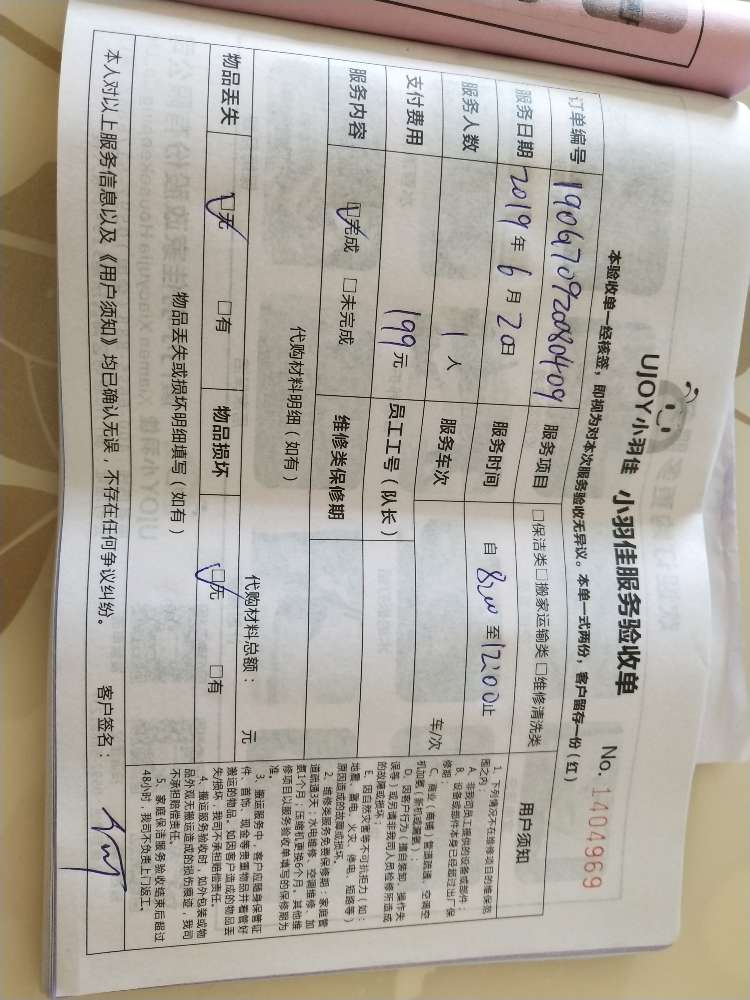 UJOY小羽佳 小羽佳服务验收单
No. 1404969
本验收单一经核签，即视为对本次服务验收无异议。本单一式两份，客户留存一份（红）
订单编号 190617092080409 服务项目 □保洁类□搬家运输类□维修清洗类
服务日期 2019年6月20日 服务时间 自8:00至12:00止
服务人数 1人 服务车次 车/次
支付费用 199元 员工工号（队长）
服务内容 ☑完成 □未完成 维修类保修期
代购材料明细（如有） 代购材料总额： 元
物品丢失 ☑无 □有 物品损坏 ☑无 □有
物品丢失或损坏明细填写（如有）
本人对以上服务信息以及《用户须知》均已确认无误，不存在任何争议纠纷。 客户签名：
用户须知
1、下列情况不在维修项目的维保范
围之内：
A、非我司员工提供的设备或部件；
B、设备或部件本身已经超过出厂保
修期；
C、商业（商铺）管道疏通、空调空
机加氨（新机或漏氨）；
D、因客户行为（擅自装卸、操作失
误等）或另请非我司人员检修所造成
的故障或损坏；
E、因自然灾害等不可抗拒力（如：
地震、雷电、火灾、停电、短路等）
原因造成的故障或损坏。
2、维修类服务免费保修期：家庭管
道疏通3天；水电维修、空调维修、加
氨1个月；压缩机更换6个月，其他维
修项目以服务验收单填写的保修期为
准。
3、搬运服务中，客户应随身保管证
件、首饰、现金等贵重物品并看管好
搬运的物品。如因客户造成的物品丢
失/损坏，我司不承担赔偿责任。
4、搬运服务验收时，如外包装或物
品外观无搬运造成的损伤痕迹，我司
不承担赔偿责任。
5、家庭保洁服务验收结束后超过
48小时，我司不负责上门返工。